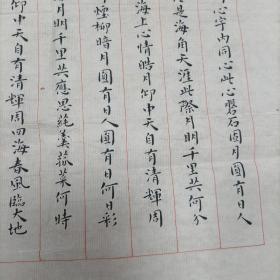 心字内同心此心磐石固月圓有日人
是海角天涯此際月明千里共何分
海上心情皓月仰中天自有清輝周
煙柳暗月圓有日人圓有日何日彩
月明千里共應思蒓羹菰菜何時
仰中天自有清輝周四海春風臨大地